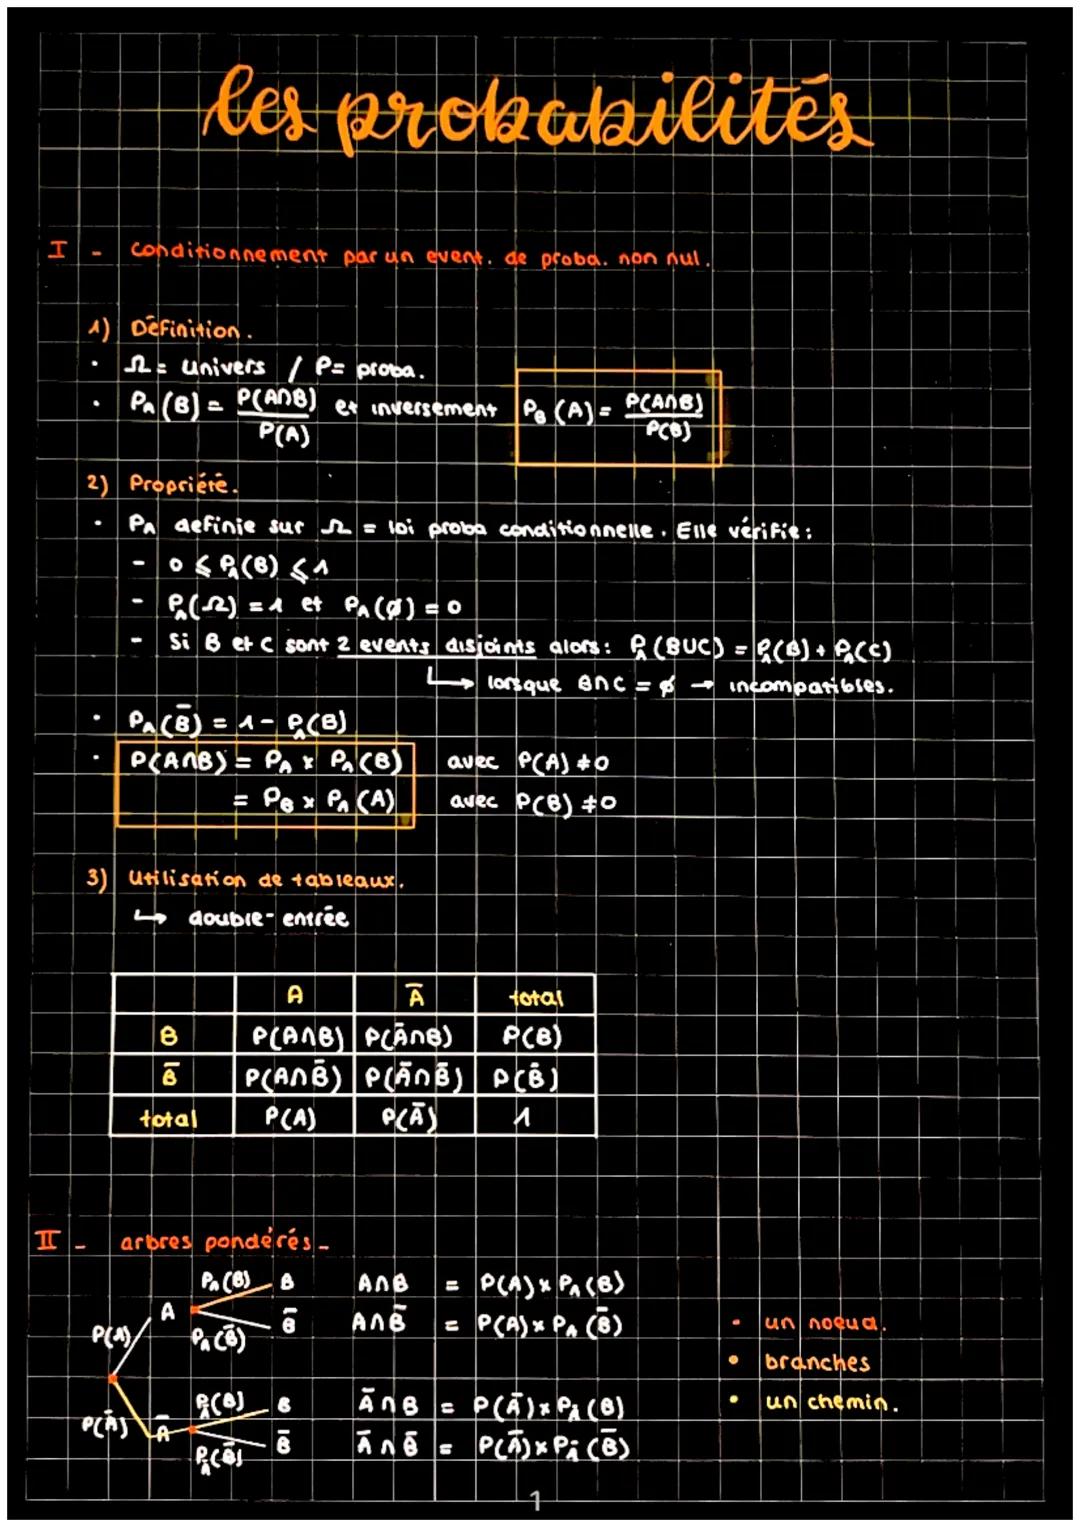 les probabilités
I - Conditionnement par un event. de proba. non nul.
1) Définition.
• Ω = univers / P = proba.
• P_A(B) = P(A∩B) / P(A) et inversement P_B(A) = P(A∩B) / P(B)
2) Propriété.
• P_A définie sur Ω = loi proba conditionnelle. Elle vérifie :
- 0 ⩽ P_A(B) ⩽ 1
- P_A(Ω) = 1 et P_A(ø) = 0
- Si B et C sont 2 events disjoints alors : P_A(BUC) = P_A(B) + P_A(C)
↳ lorsque B∩C = ø → incompatibles.
• P_A(B̄) = 1 - P_A(B)
• P(A∩B) = P_A x P_A(B) avec P(A) ≠ 0
= P_B x P_A(A) avec P(B) ≠ 0
3) Utilisation de tableaux.
↳ double-entrée
A Ā total
B P(A∩B) P(Ā∩B) P(B)
B̄ P(A∩B̄) P(Ā∩B̄) P(B̄)
total P(A) P(Ā) 1
II - arbres pondérés -
P_A(B) B A∩B = P(A) x P_A(B)
A
P(A) P_A(B̄) B̄ A∩B̄ = P(A) x P_A(B̄)
• un noeud.
• branches
• un chemin.
P_Ā(B) B Ā∩B = P(Ā) x P_Ā(B)
P(Ā) Ā
P_Ā(B̄) B̄ Ā∩B̄ = P(Ā) x P_Ā(B̄)
1